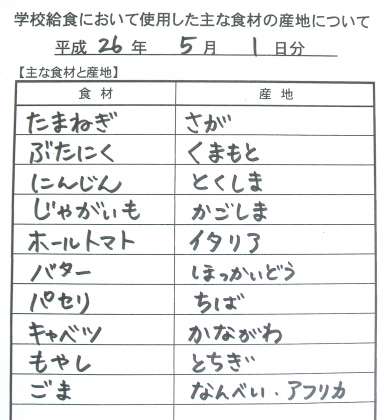 学校給食において使用した主な食材の産地について
平成 26 年 5 月 1 日分
【主な食材と産地】
食材 産地
たまねぎ さが
ぶたにく くまもと
にんじん とくしま
じゃがいも かごしま
ホールトマト イタリア
バター ほっかいどう
パセリ ちば
キャベツ かながわ
もやし とちぎ
ごま なんべい・アフリカ